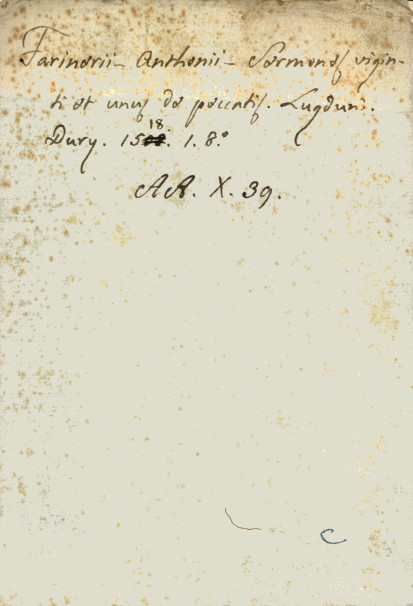 Farinerii - Anthonii - Sermones vigin-
ti et unus de peccatis. Lugduni.
Dury. 1518. 1. 8.°
AA. X. 39.
C